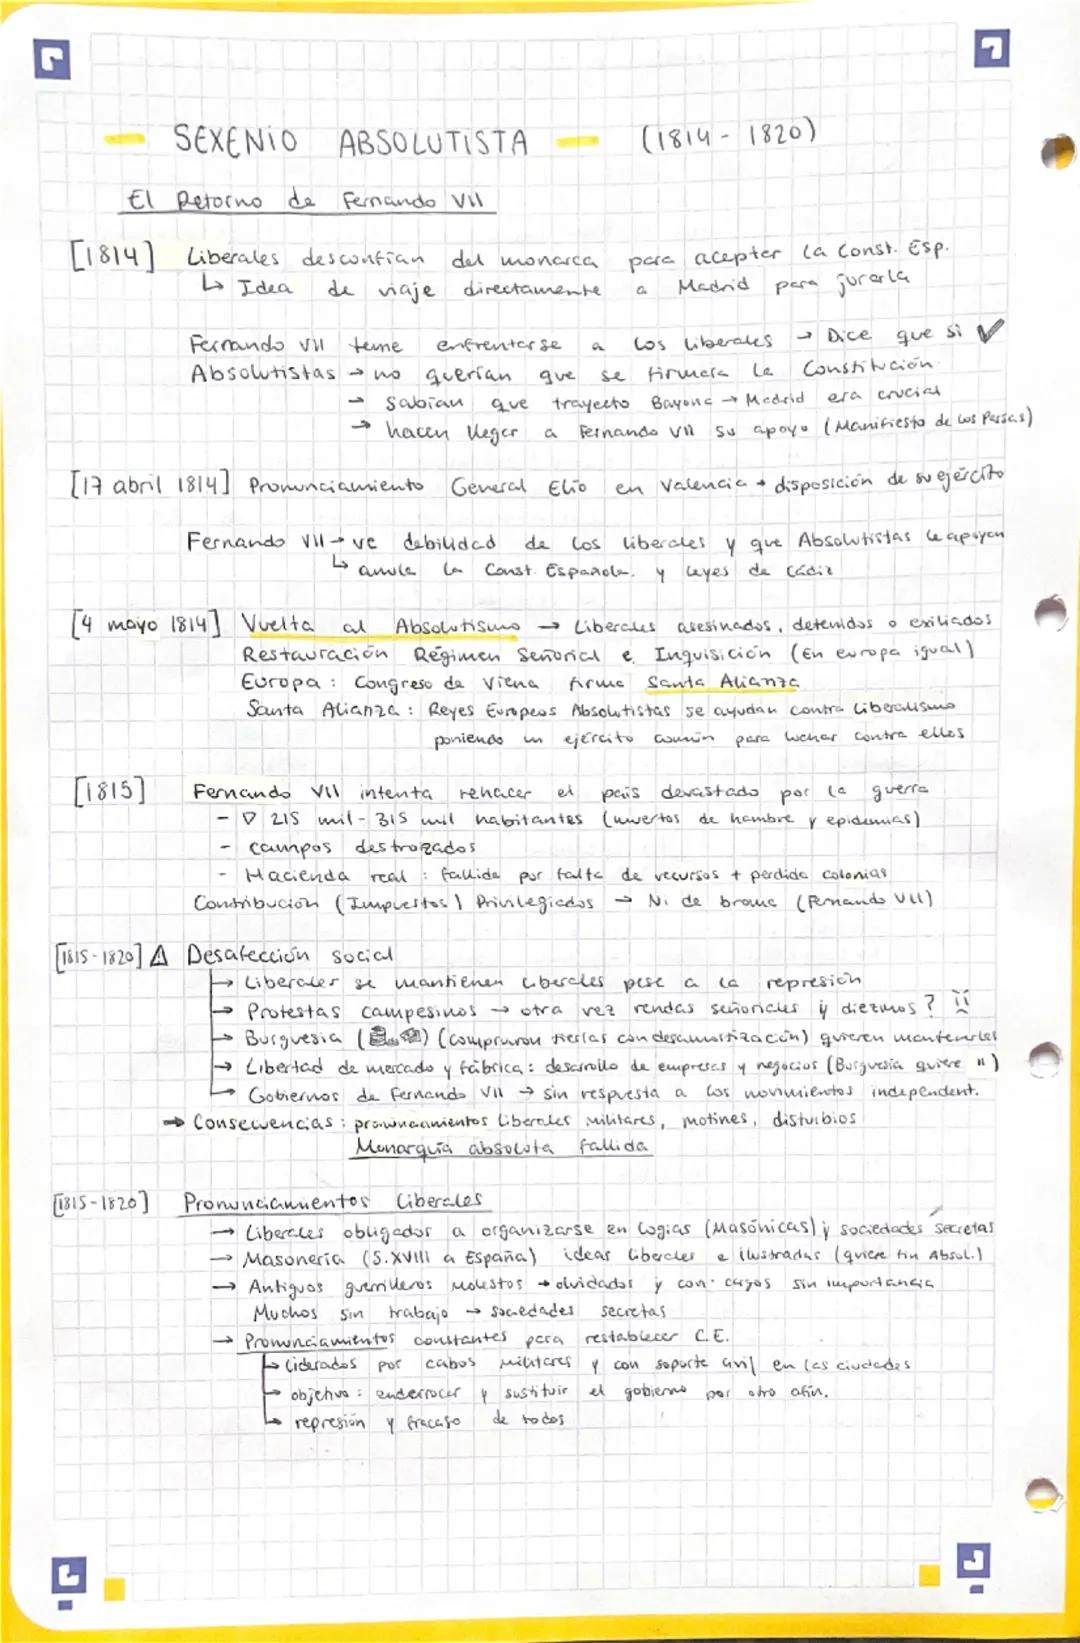 SEXENIO ABSOLUTISTA (1814 - 1820)
El Retorno de Fernando VII
[1814] Liberales desconfían del monarca para acepter la Const. Esp.
↳ Idea de viaje directamente a Madrid para jurarla
Fernando VII teme enfrentarse a los liberales → Dice que si ✓
Absolutistas → no querían que se firmara la Constitución.
→ sabían que trayecto Bayona → Madrid era crucial
→ hacen llegar a Fernando VII su apoyo (Manifiesto de los Persas)
[17 abril 1814] Pronunciamiento General Elío en Valencia + disposición de su ejército
Fernando VII → ve debilidad de los liberales y que Absolutistas le apoyan
↳ anula la Const. Española. y leyes de Cádiz
[4 mayo 1814] Vuelta al Absolutismo → Liberales asesinados, detenidos o exiliados
Restauración Régimen Señorial e Inquisición (En europa igual)
Europa: Congreso de Viena firma Santa Alianza
Santa Alianza: Reyes Europeos Absolutistas se ayudan contra liberalismo
poniendo un ejército común para luchar contra ellos
[1815] Fernando VII intenta rehacer el país devastado por la guerra
- ▽ 215 mil - 315 mil habitantes (muertos de hambre y epidemias)
- campos destrozados
- Hacienda real: fallida por falta de recursos + perdida colonias
Contribución (Impuestos) Privilegiados → Ni de broma (Fernando VII)
[1815-1820] ⚠ Desafección social
→ Liberales se mantienen liberales pese a la represión
→ Protestas campesinos → otra vez rendas señoriales y diezmos?
→ Burguesía (compraron tierras con desamortización) quieren mantenerles
→ Libertad de mercado y fábrica: desarollo de empresas y negocios (Burguesía quiere ")
→ Gobiernos de Fernando VII → sin respuesta a los movimientos independent.
→ Consecuencias: pronunciamientos liberales militares, motines, disturbios
Monarquía absoluta fallida
[1815-1820] Pronunciamientos Liberales
→ Liberales obligados a organizarse en logias (Masónicas) y sociedades secretas
→ Masonería (S.XVIII a España) ideas liberales e ilustradas (quiere fin Absol.)
→ Antiguos guerrilleros molestos → olvidados y con cargos sin importancia
Muchos sin trabajo → sociedades secretas
→ Pronunciamientos constantes para restablecer C.E.
↳ liderados por cabos militares y con soporte civil en las ciudades
→ objetivo: enderrocar y sustituir el gobierno por otro afín.
↳ represión y fracaso de todos